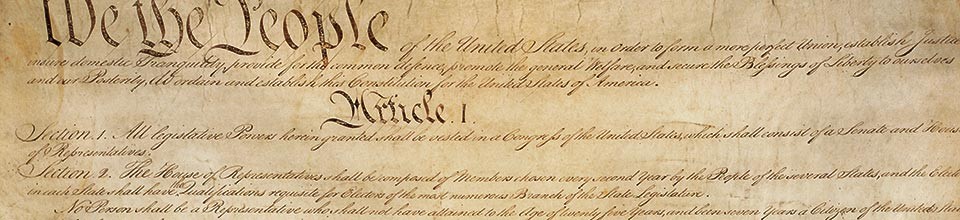 We the People of the United States, in Order to form a more perfect Union, establish Justice
insure domestic Tranquility, provide for the common defence, promote the general Welfare, and secure the Blessings of Liberty to ourselves
and our Posterity, do ordain and establish this Constitution for the United States of America.
Article. I.
Section. 1. All legislative Powers herein granted shall be vested in a Congress of the United States, which shall consist of a Senate and House
of Representatives.
Section. 2. The House of Representatives shall be composed of Members chosen every second Year by the People of the several States, and the
in each State shall have the Qualifications requisite for Electors of the most numerous Branch of the State Legislature.
No Person shall be a Representative who shall not have attained to the Age of twenty five Years, and been seven Years a Citizen of the United